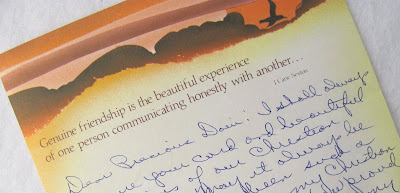 Genuine friendship is the beautiful experience
of one person communicating honestly with another...
Dear Precious Dair: I shall always
your card and beautiful
of our Christian
may it always be
been such a
my Christian
proud